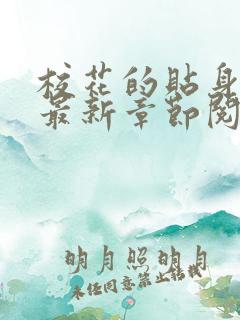 校花的贴身
最新章节阅
明月照明月
未经同意禁止转载